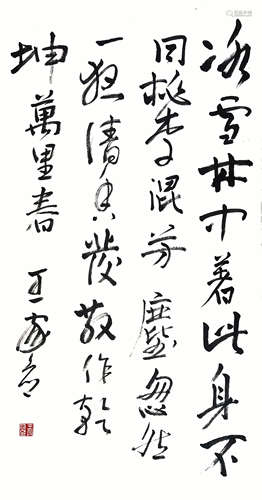 冰雪林中著此身不
同桃李混芳塵忽然
一夜清香發散作乾
坤萬里春 王家